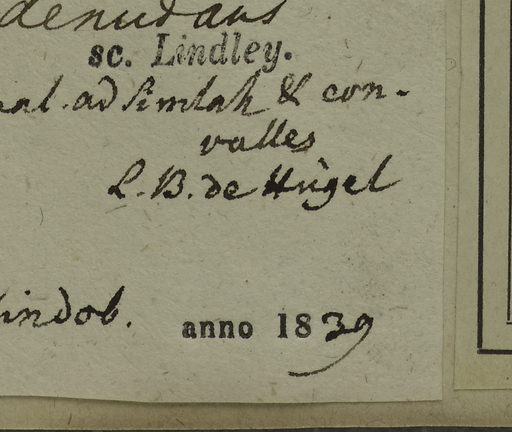 denudans
sc. Lindley.
ad Simlah & con-
valles
L. B. de Hügel
indob.
anno 1839